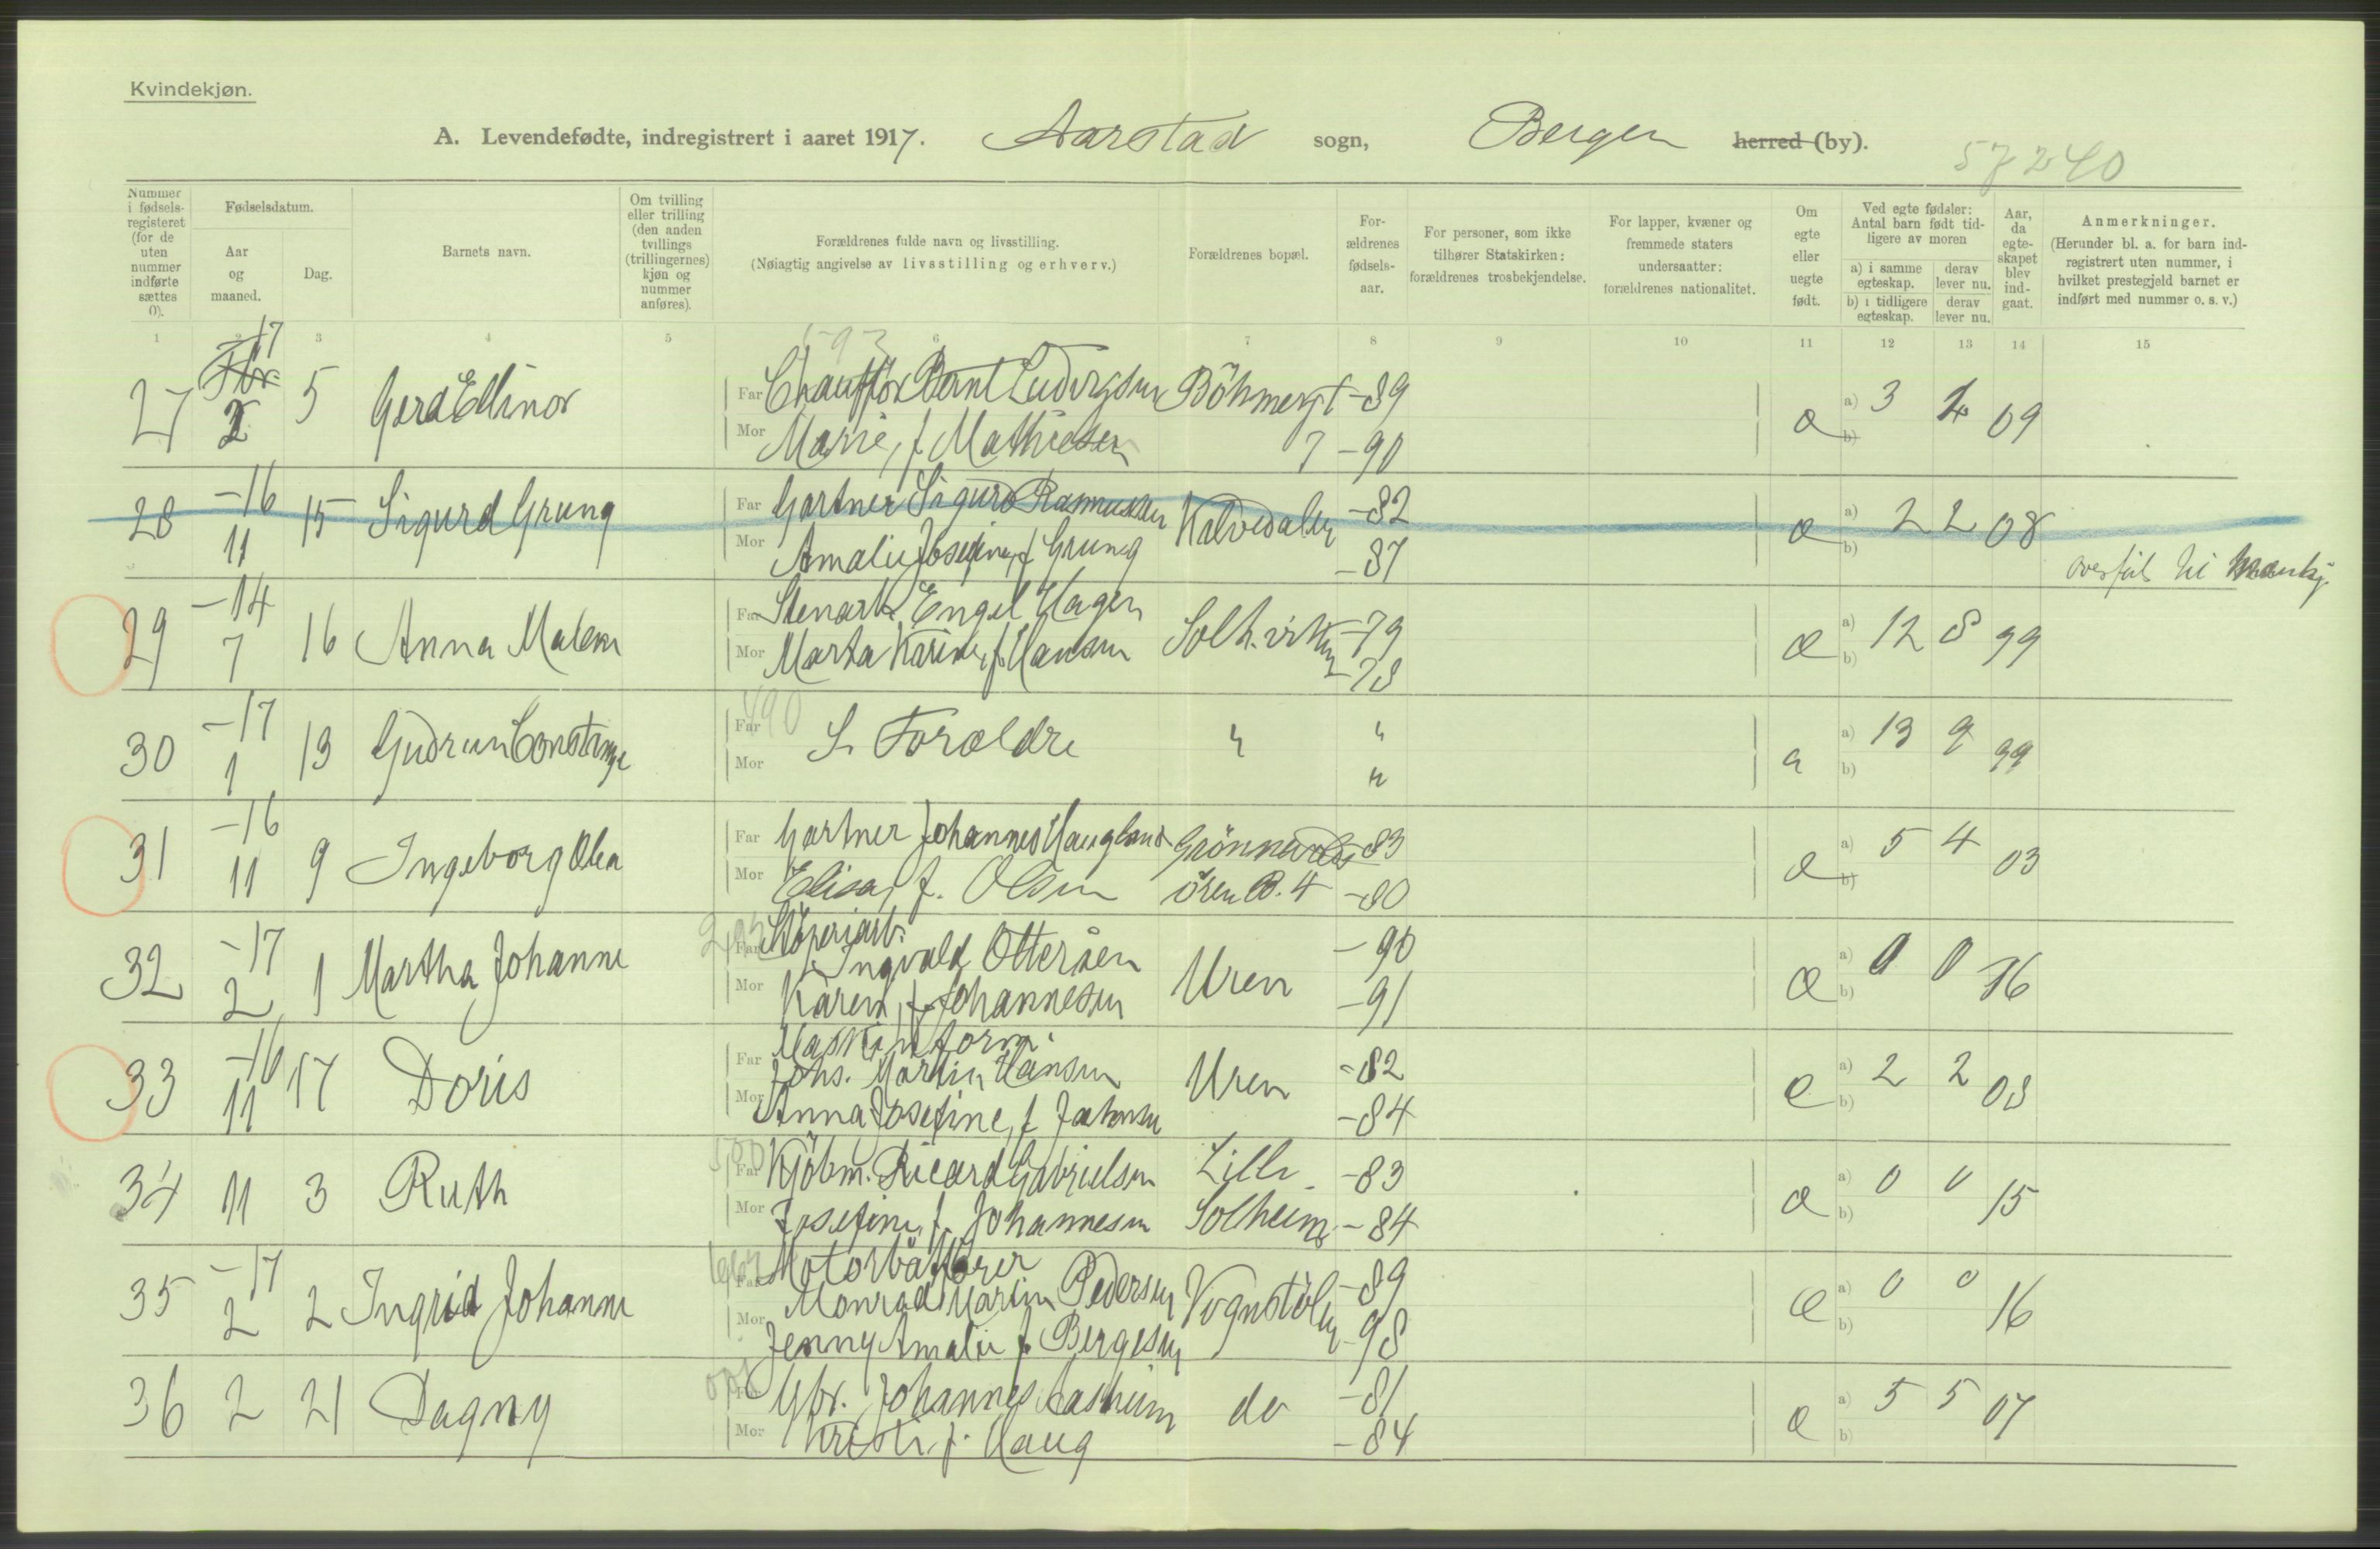 Kvindekjøn.
A. Levendefødte, indregistrert i aaret 1917. Aarstad sogn, Bergen herred (by).
57240
Nummer i fødselsregisteret (for de uten nummer indførte sættes 0).
Fødselsdatum.
Aar og maaned.
Dag.
Barnets navn.
Om tvilling eller trilling (den anden tvillings (trillingernes) kjøn og nummer anføres).
Forældrenes fulde navn og livsstilling.
(Nøiagtig angivelse av livsstilling og erhverv.)
Forældrenes bopæl.
Forældrenes fødselsaar.
For personer, som ikke tilhører Statskirken: forældrenes trosbekjendelse.
For lapper, kvæner og fremmede staters undersaatter: forældrenes nationalitet.
Om egte eller uegte født.
Ved egte fødsler: Antal barn født tidligere av moren
a) i samme egteskap. derav lever nu.
b) i tidligere egteskap. derav lever nu.
Aar, da egteskapet blev indgaat.
Anmerkninger.
(Herunder bl. a. for barn indregistrert uten nummer, i hvilket prestegjeld barnet er indført med nummer o. s. v.)
1 2 3 4 5 6 7 8 9 10 11 12 13 14 15
27 -17 2 5 Gerd Ellinor Far Chauffør Bernt Ludvigsen Böhmergt -89 a) 3 4 09
Mor Marie, f Mathiesen 7 -90 b)
28 -16 11 15 Sigurd Grung Far Gartner Sigurd Rasmussen Kalvedalen -82 a) 2 2 08
Mor Amalie Josefine, f Grung -87 b) overført til
29 -14 7 16 Anna Malene Far Stenarb. Engel Hagen Solh.viken -79 a) 12 8 99
Mor Marta Karine, f. Hansen -78 b)
30 -17 1 13 Gudrun Constanse Far S. Forældre " " a) 13 9 99
Mor " b)
31 -16 11 9 Ingeborg Olea Far Gartner Johannes Haugland -83 a) 5 4 03
Mor Elisa, f. Olsen ören B. 4 -80 b)
32 -17 2 1 Martha Johanne Far Støperiarb. Ingvald Ottersen Uren -90 a) 0 0 16
Mor Karen, f. Johannesen -91 b)
33 -16 11 17 Doris Far Maskinform. Johs. Martin Hansen Uren -82 a) 2 2 08
Mor Anna Josefine, f -84 b)
34 11 3 Ruth Far Kjøbm. Ricard Gabrielsen Lille -83 a) 0 0 15
Mor Josefine, f. Johannesen Solheim -84 b)
35 -17 2 2 Ingrid Johanne Far Motorbåtfører Monrad Martin Pedersen Vognstølen -89 a) 0 0 16
Mor Jenny Amalie f. Bergesen -98 b)
36 2 21 Dagny Far Gbr. Johannes Aasheim do -81 a) 5 5 07
Mor Kristi, f. Haug -84 b)